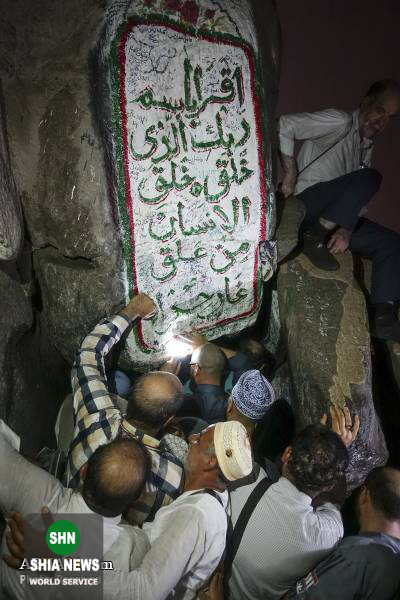 اقرأ باسم
ربك الذي
خلق ۝ خلق
الانسان
من علق
غار حراء
SHN
ASHIA NEWS
WORLD SERVICE